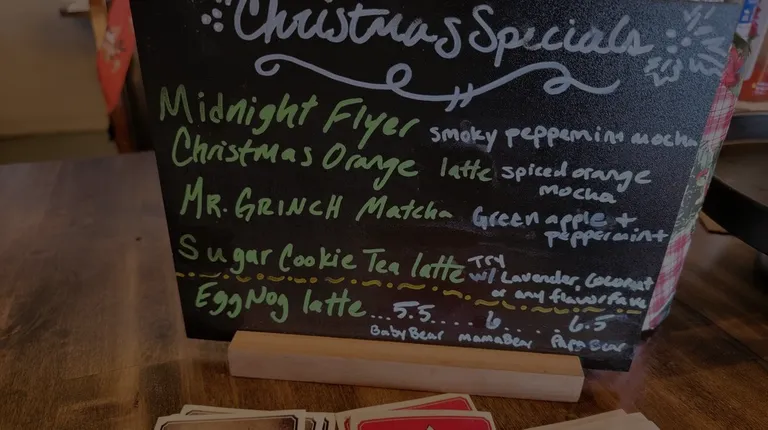 Christmas Specials
Midnight Flyer smoky peppermint mocha
Christmas Orange latte spiced orange
mocha
MR. GRINCH Matcha Green apple +
peppermint
Sugar Cookie Tea latte Try
w/ Lavender, Coconut
or any flavor fave
EggNog latte...5.5.....6.......6.5
Baby Bear Mama Bear Papa Bear